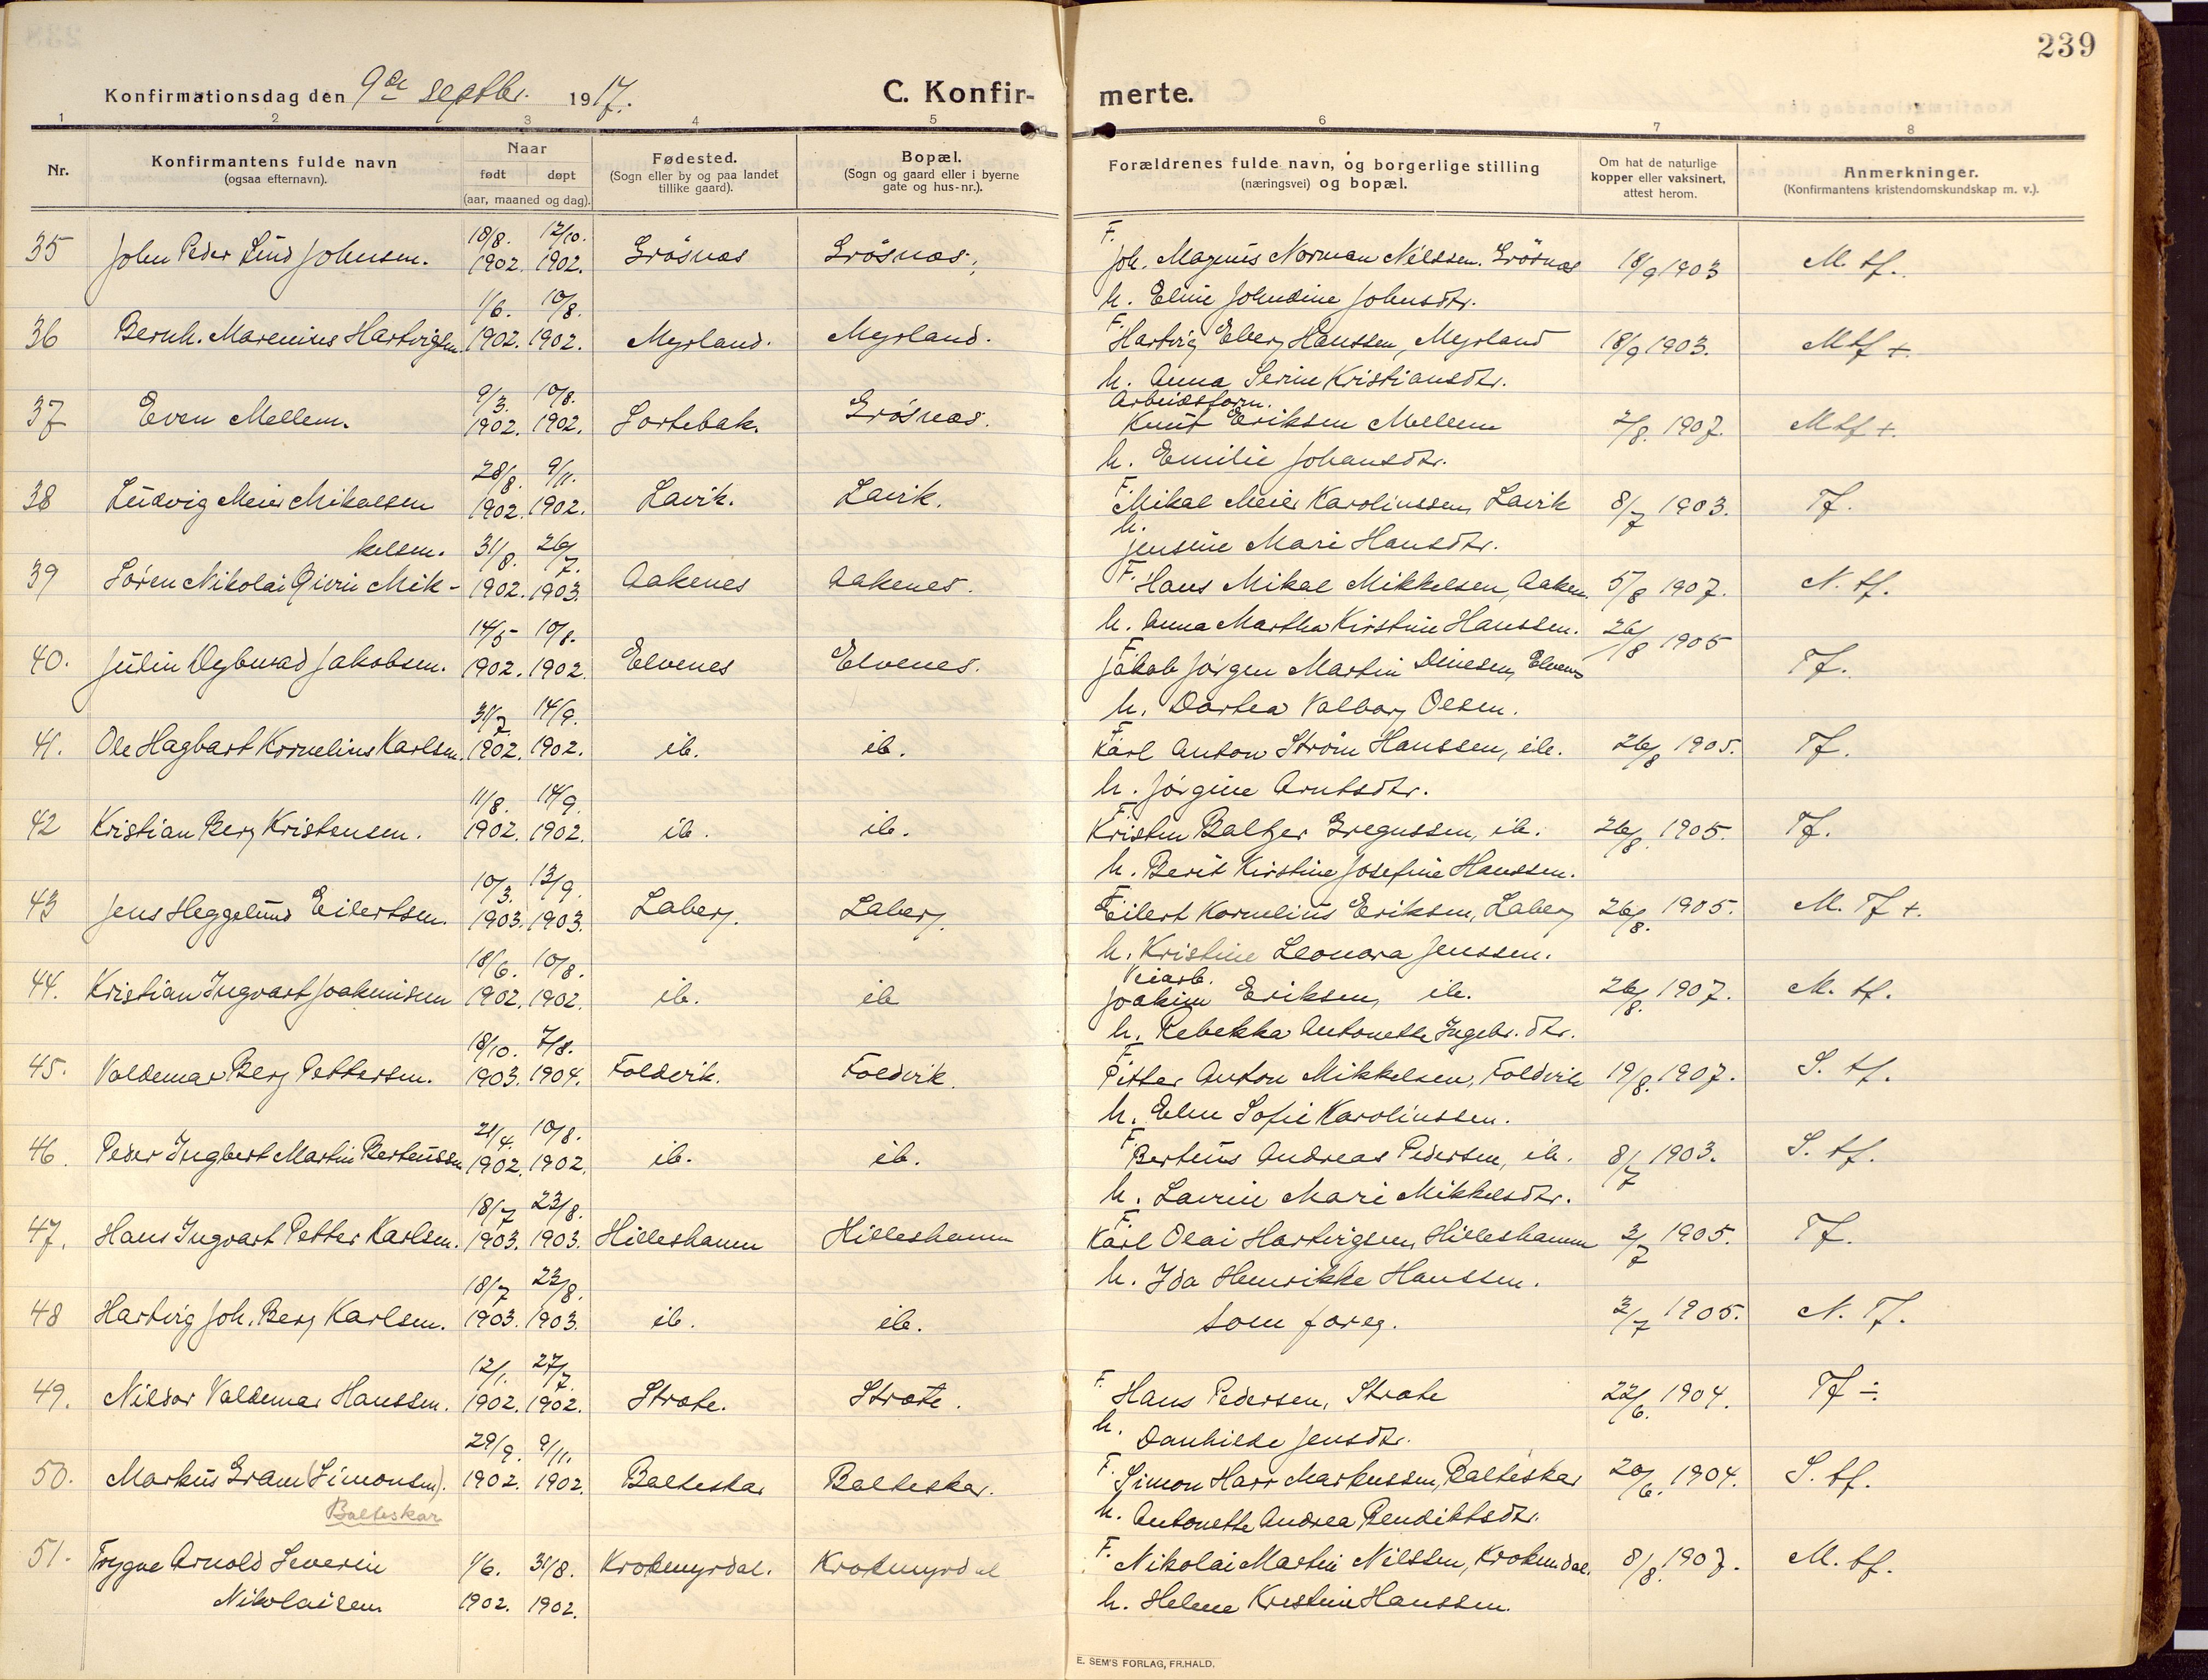 239
Konfirmationsdag den 9de septbr. 1917.
C. Konfir- merte.
1 2 3 4 5 6 7 8
Nr.
Konfirmantens fulde navn
(ogsaa efternavn).
Naar
født døpt
(aar, maaned og dag).
Fødested.
(Sogn eller by og paa landet
tillike gaard).
Bopæl.
(Sogn og gaard eller i byerne
gate og hus-nr.).
Forældrenes fulde navn, og borgerlige stilling
(næringsvei) og bopæl.
Om hat de naturlige
kopper eller vaksinert,
attest herom.
Anmerkninger.
(Konfirmantens kristendomskundskap m. v.).
18/8. 12/10. F.
35 John Peder Lind Johnsen. 1902. 1902. Grösnes Grösnes. Joh. Magnus Norman Nilssen. Grösnes 18/9 1903 M. tf.
1/6. 10/8. h. Eline Johndine Johnsdtr.
36 Bernh. Marenius Hartvigsen. 1902. 1902. Myrland. Myrland. F. Hartvig Eberg Hanssen, Myrland 18/9 1903. M tf +.
9/3. 10/8. h. Anna Serine Kristiansdtr.
Arbeidsform.
37 Even Mellem. 1902. 1902. Sortebak. Grösnes. Knut Eriksen Mellem 2/8. 1907. M tf +.
28/8. 9/11. h. Emilie Johansdtr.
38 Ludvig Meier Mikalsen 1902. 1902. Lavik. Lavik. F. Mikal Meier Karolinssen, Lavik 8/7 1903. Tf.
kelsen. 31/8. 26/7. h. Jensine Mari Hansdtr.
39 Sören Nikolai Qivin Mik- 1902. 1903. Aakenes Aakenes. F. Hans Mikal Mikkelsen, Aaken. 5/8 1907. N. tf.
14/5 10/8. h. Anna Martha Kirstine Hanssen.
40. Julin Dybwad Jakobsen. 1902. 1902. Elvenes Elvenes. F. Jakob Jörgen Martin Dinesen, Elvenes 26/8 1905 Tf.
31/7. 14/9. h. Dortea Valborg Olsen.
41. Ole Hagbart Kornelius Karlsen. 1902. 1902. ib. ib. F. Karl Anton Ström Hanssen, ib. 26/8 1905. Tf.
11/8. 14/9. h. Jörgine Arntsdtr.
42 Kristian Berg Kristensen. 1902. 1902. ib. ib. F. Kristen Baltzer Gregussen, ib. 26/8. 1905. Tf.
10/3. 13/9. h. Berit Kirstine Josefine Hanssen.
43 Jens Heggelund Eilertsen. 1903. 1903. Laberg. Laberg. F. Eilert Kornelius Eriksen, Laberg 26/8. 1905. M. Tf +.
18/6. 10/8. h. Kristine Leonora Jenssen.
Veiarb.
44. Kristian Ingvart Joakimsen 1902. 1902. ib. ib Joakim Eriksen, ib. 26/8. 1907. M. tf.
18/10. 7/8. h. Rebekka Antonette Ingebr. dtr.
45. Valdemar Berg Pettersen. 1903. 1904. Foldvik. Foldvik. F. Petter Anton Mikkelsen, Foldvik 19/8. 1907. S. tf.
21/4. 10/8. h. Elen Sofie Karolinssen.
46. Peder Ingbert Martin Berteussen 1902. 1902. ib. ib. F. Berteus Andreas Pedersen, ib. 8/7 1903. S. tf.
18/7 23/8. h. Lavrie Mari Mikkelsdtr.
47. Hans Ingvart Petter Karlsen. 1903. 1903. Hilleshamn Hilleshamn F. Karl Olai Hartvigsen, Hilleshamn 3/7 1905. Tf.
18/7 23/8. h. Ida Henrikke Hanssen.
48 Hartvig Joh. Berg Karlsen. 1903. 1903. ib. ib. Som foreg. 3/7 1905. N. Tf.
12/1. 27/7.
49. Nildor Valdemar Hanssen. 1902. 1902. Stræte. Stræte. F. Hans Pedersen, Stræte 22/6. 1904. Tf ÷
29/9. 9/11. h. Danhilde Jensdtr.
50. Markus Gram (Simonsen). 1902. 1902. Balteskar Balteskar. F. Simon Harr Markussen, Balteskar 20/6. 1904. S. tf.
Balteskar h. Antonette Andrea Bendiktsdtr.
51. Trygve Arnold Severin 1/6. 31/8. Krokmyrdal. Krokmyrdal F. Nikolai Martin Nilssen, Krokmdal. 8/8. 1907. M. tf.
Nikolaisen 1902. 1902. h. Helene Kristine Hanssen.
E. SEM'S FORLAG, FR.HALD.